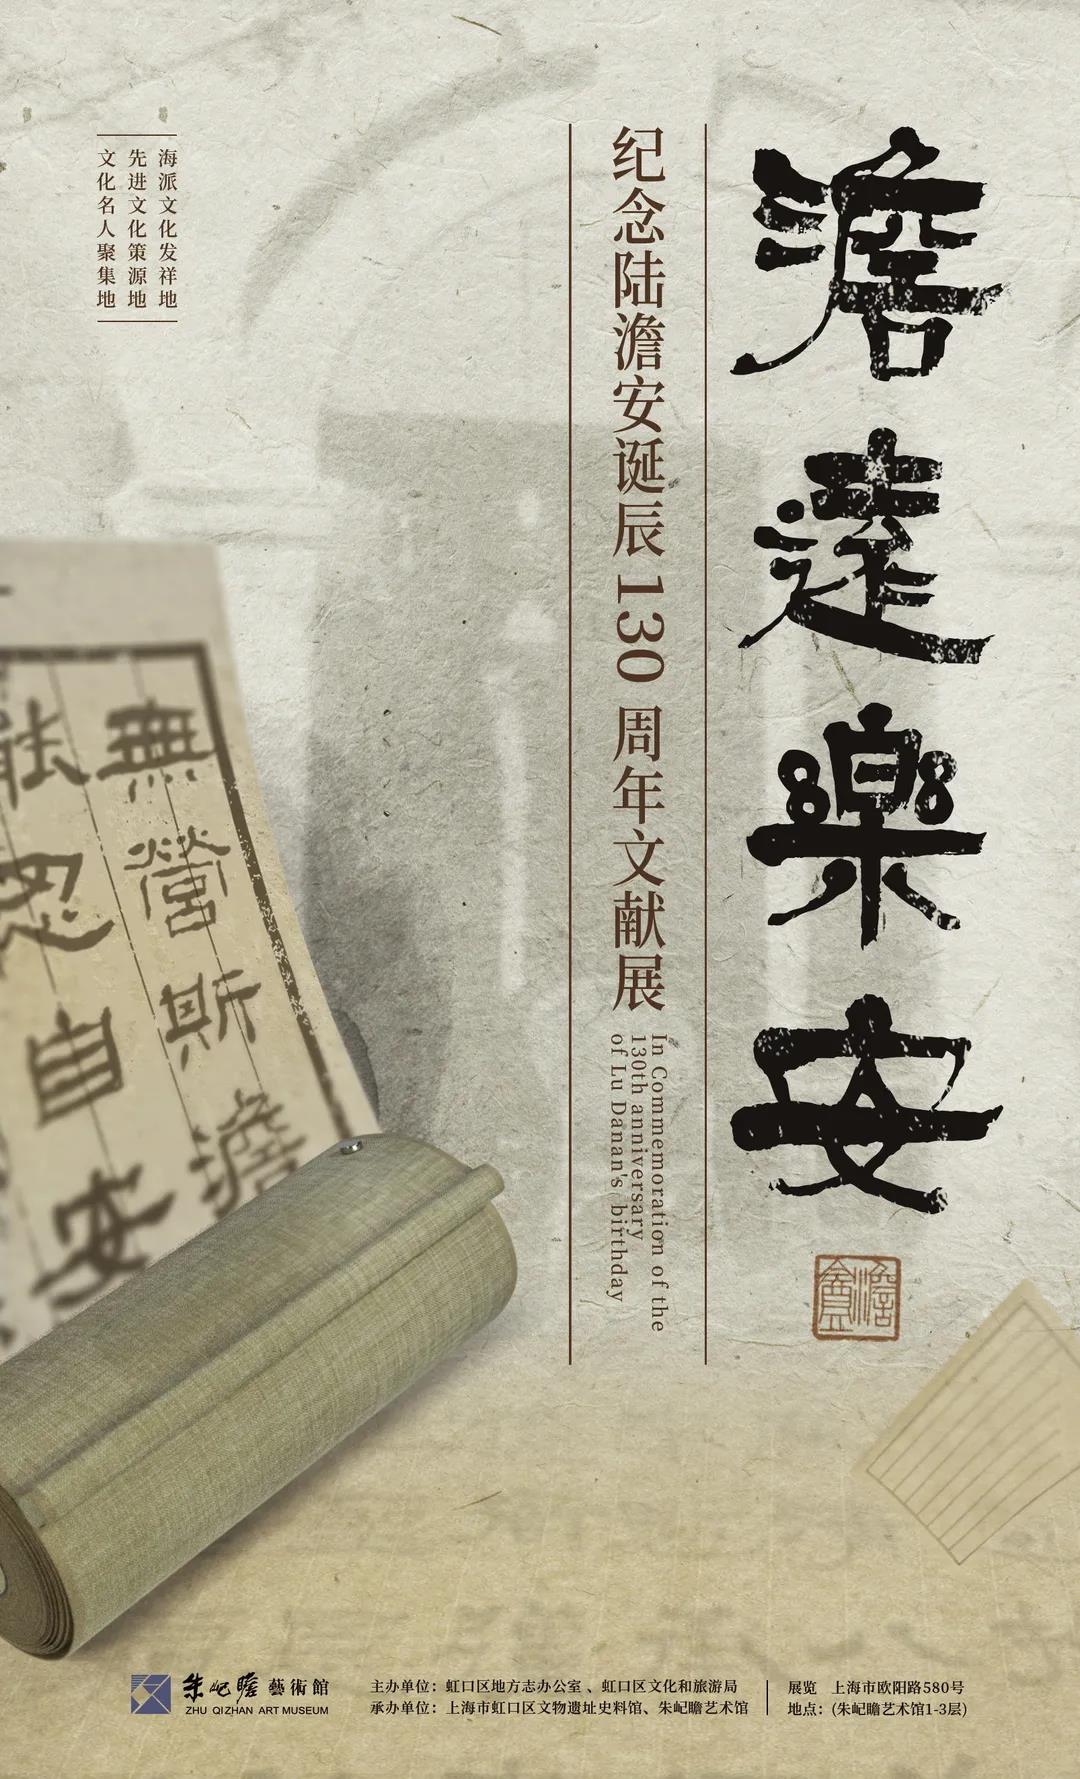 澹遠樂安
纪念陆澹安诞辰130周年文献展
In Commemoration of the
130th anniversary
of Lu Danan's birthday
海派文化发祥地
先进文化策源地
文化名人聚集地
無營斯澹
能忍自安
朱屺瞻藝術館
ZHU QIZHAN ART MUSEUM
主办单位：虹口区地方志办公室、虹口区文化和旅游局
承办单位：上海市虹口区文物遗址史料馆、朱屺瞻艺术馆
展览 上海市欧阳路580号
地点：(朱屺瞻艺术馆1-3层)